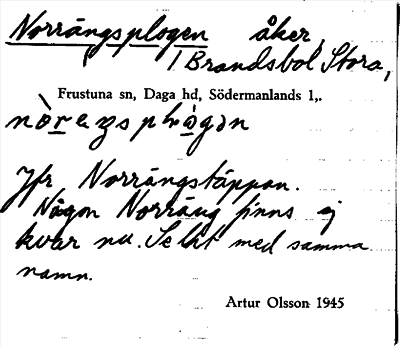 Norrängsplogen åker,
i Brandsbol Stora,
Frustuna sn, Daga hd, Södermanlands l,.
Jfr Norrängstäppan.
Någon Norräng finns ej
kvar nu. Se
med samma
namn.
Artur Olsson 1945